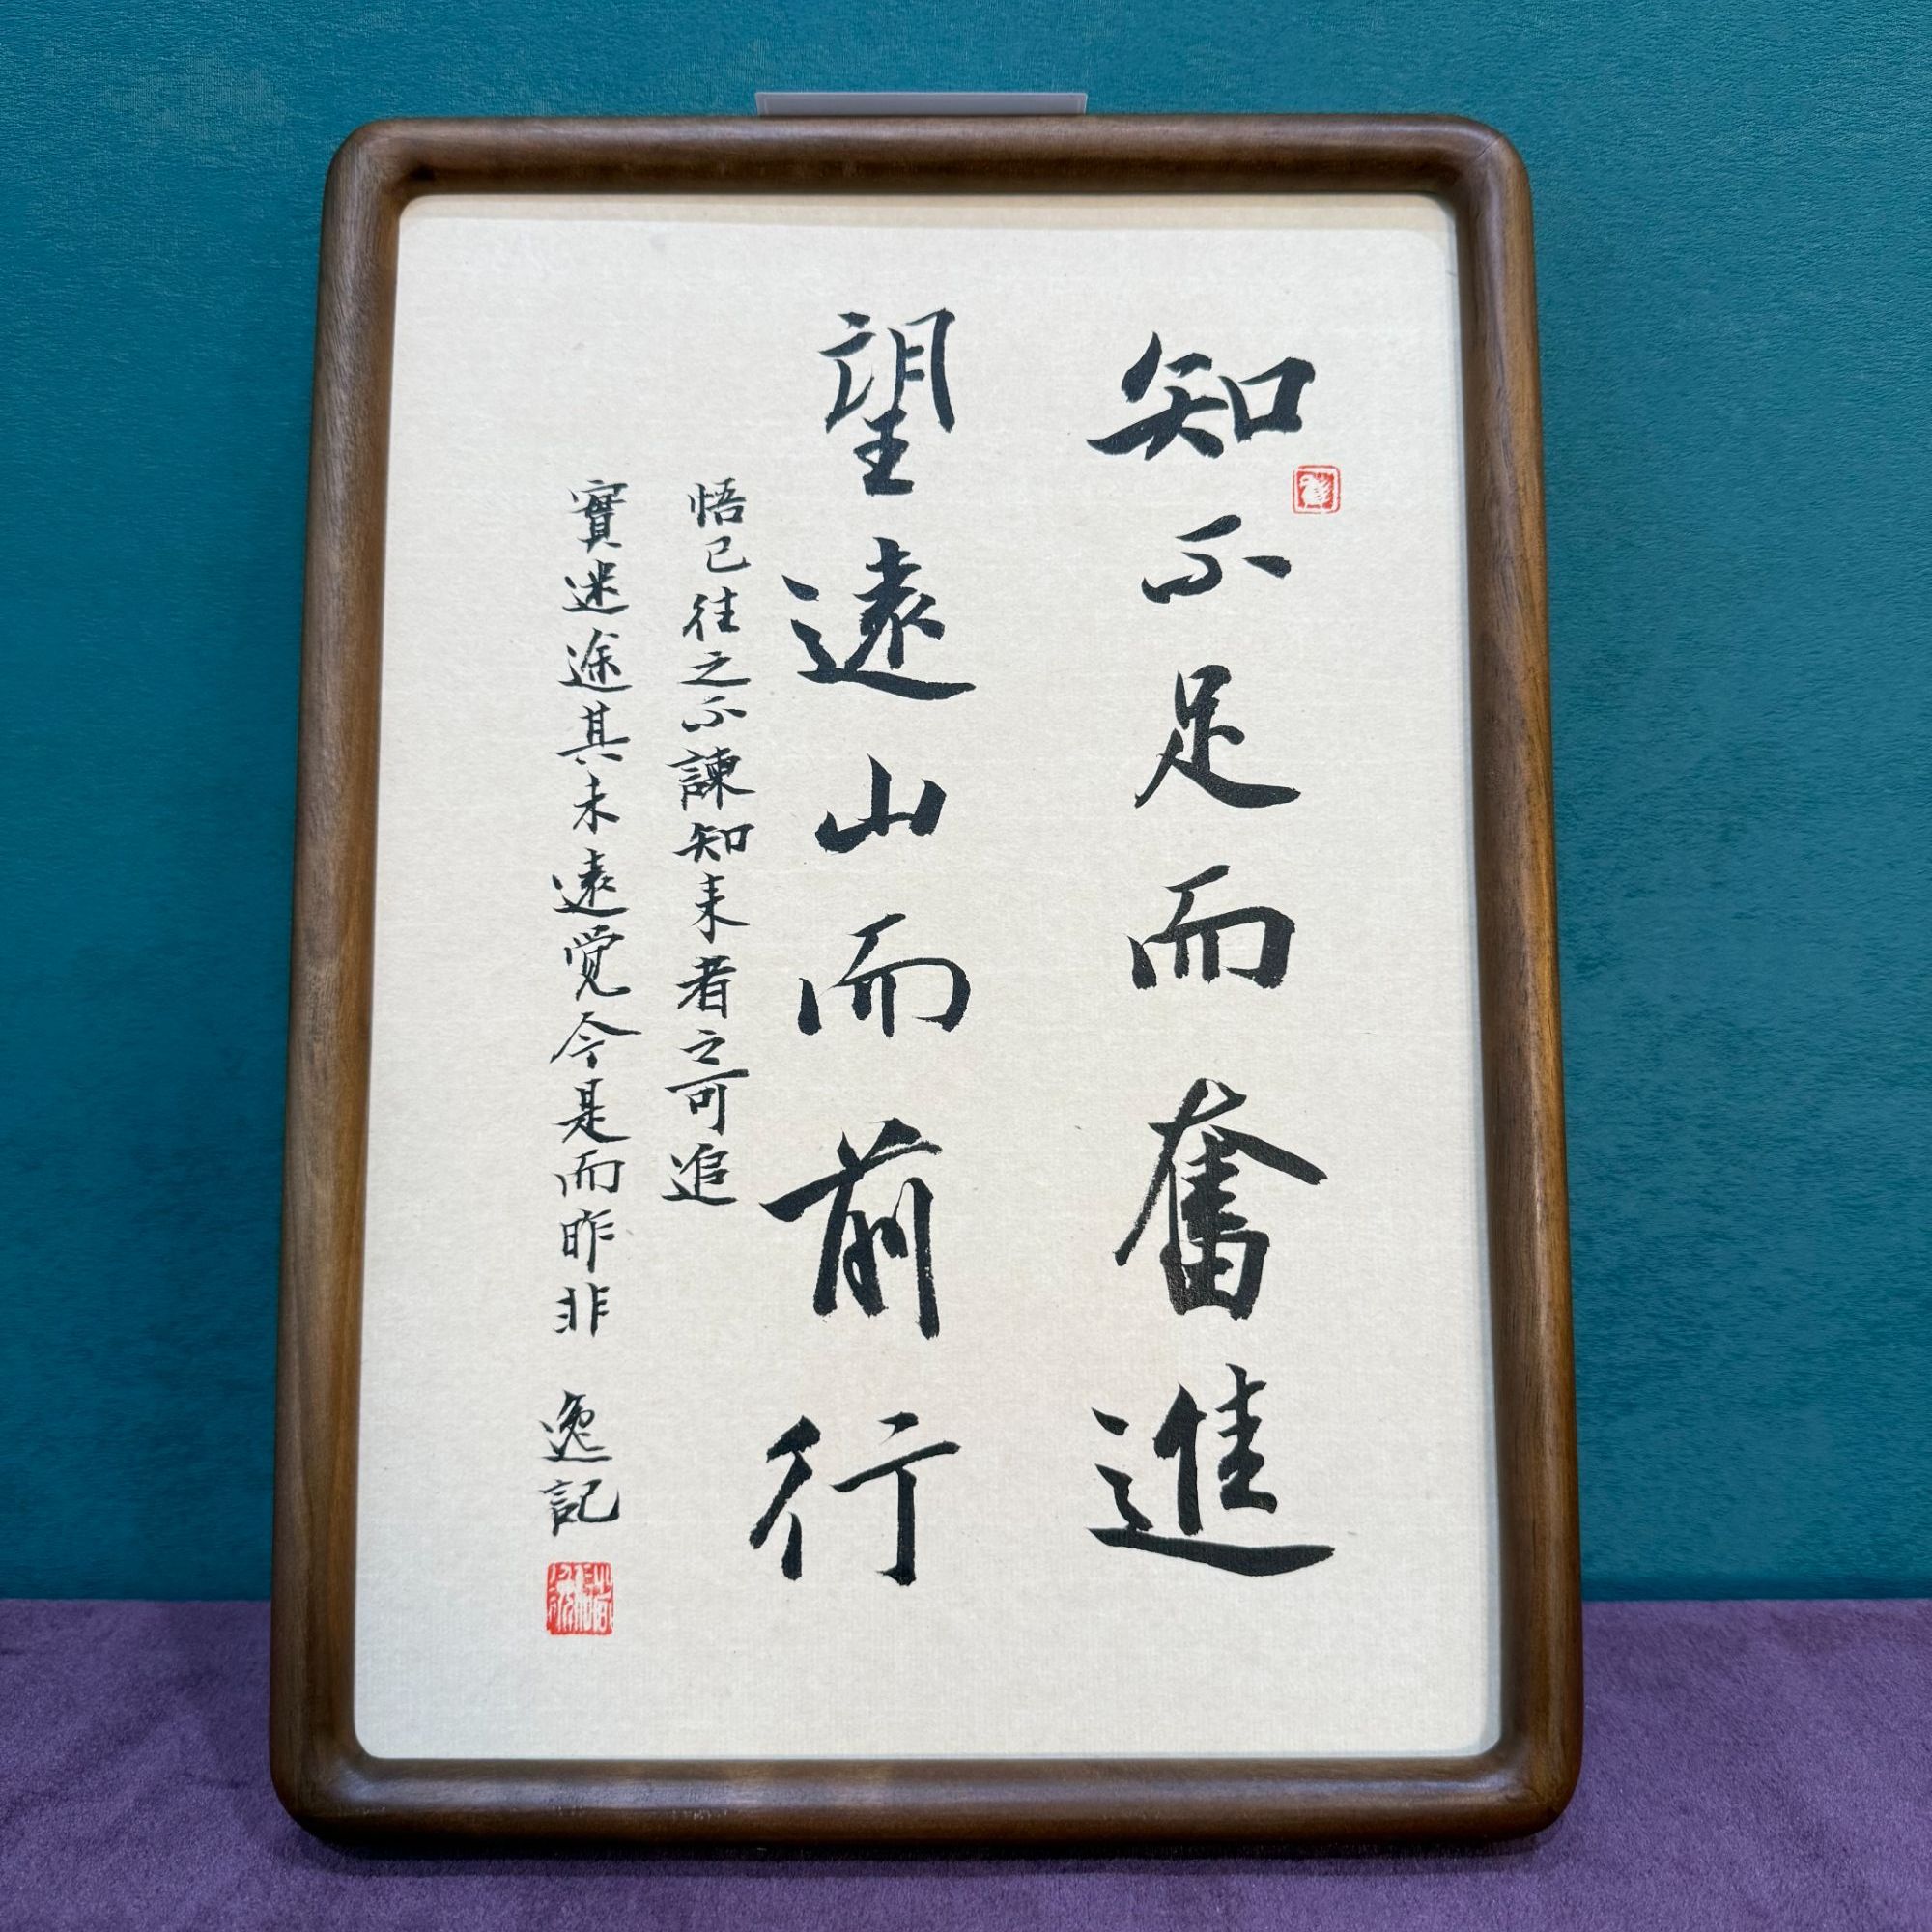 知不足而奮進
望遠山而前行
悟已往之不諫知来者之可追
實迷途其未遠覚今是而昨非
逸記